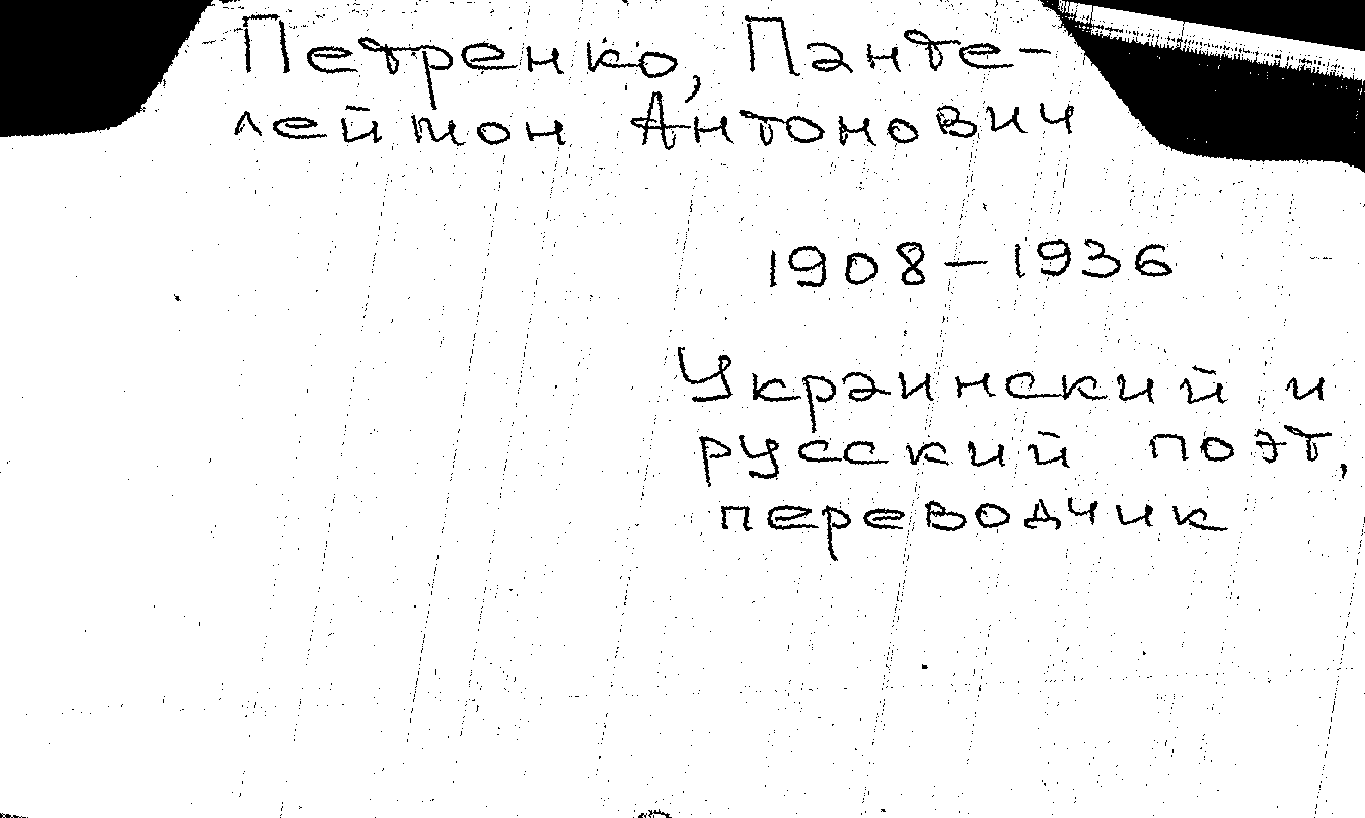 Петренко, Панте-
леймон Антонович
1908-1936
Украинский и
русский поэт,
переводчик